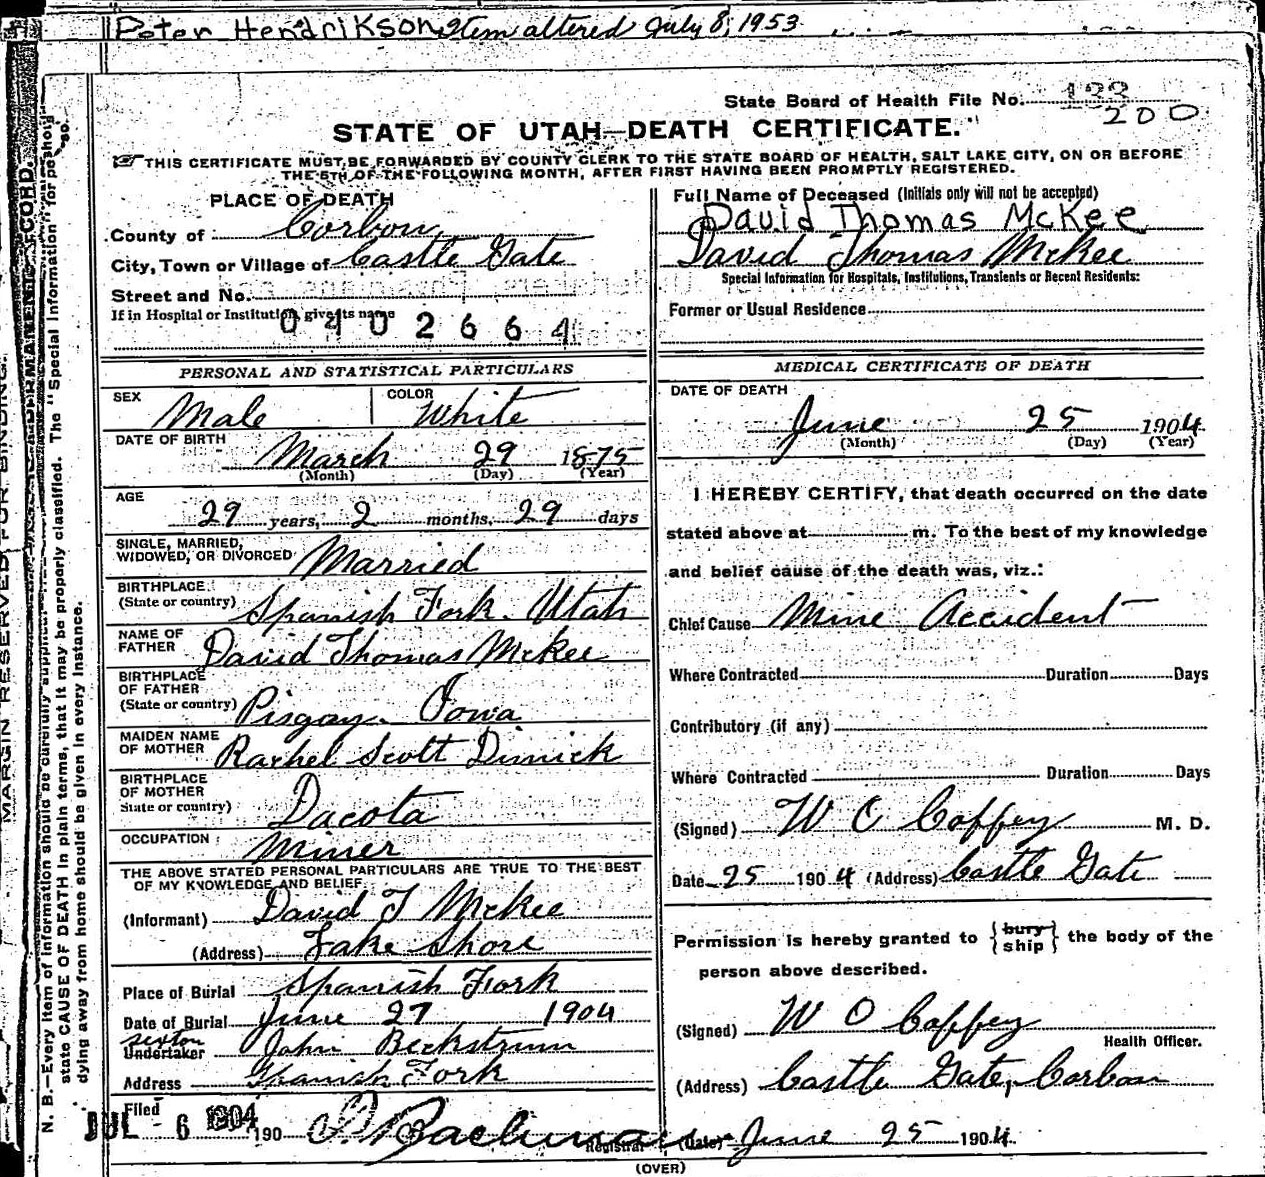 Peter Hendrikson Item altered July 8, 1953
State Board of Health File No. 133
200
STATE OF UTAH—DEATH CERTIFICATE.
THIS CERTIFICATE MUST BE FORWARDED BY COUNTY CLERK TO THE STATE BOARD OF HEALTH, SALT LAKE CITY, ON OR BEFORE
THE 5TH OF THE FOLLOWING MONTH, AFTER FIRST HAVING BEEN PROMPTLY REGISTERED.
PLACE OF DEATH
County of Corbon
City, Town or Village of Castle Gate
Street and No.
If in Hospital or Institution, give its name
0402664
Full Name of Deceased (Initials only will not be accepted)
David Thomas McKee
David Thomas McKee
Special Information for Hospitals, Institutions, Transients or Recent Residents:
Former or Usual Residence
PERSONAL AND STATISTICAL PARTICULARS
SEX Male COLOR White
DATE OF BIRTH
March 29 1875
(Month) (Day) (Year)
AGE
29 years, 2 months, 29 days
SINGLE, MARRIED,
WIDOWED, OR DIVORCED Married
BIRTHPLACE
(State or country) Spanish Fork. Utah
NAME OF
FATHER David Thomas McKee
BIRTHPLACE
OF FATHER
(State or country) Pisgay. Iowa
MAIDEN NAME
OF MOTHER Rachel Scott Dimick
BIRTHPLACE
OF MOTHER
State or country) Dacota
OCCUPATION Miner
THE ABOVE STATED PERSONAL PARTICULARS ARE TRUE TO THE BEST
OF MY KNOWLEDGE AND BELIEF
(Informant) David T McKee
(Address) Lake Shore
Place of Burial Spanish Fork
Date of Burial June 27 1904
sexton
Undertaker John Beckstrum
Address Spanish Fork
Filed
JUL - 6 1904 190
Registrar
MEDICAL CERTIFICATE OF DEATH
DATE OF DEATH
June 25 1904
(Month) (Day) (Year)
I HEREBY CERTIFY, that death occurred on the date
stated above at m. To the best of my knowledge
and belief cause of the death was, viz.:
Chief Cause Mine Accident
Where Contracted Duration Days
Contributory (if any)
Where Contracted Duration Days
(Signed) W C Coffey M. D.
Date 25 1904 (Address) Castle Gate
Permission is hereby granted to {bury ship} the body of the
person above described.
(Signed) W O Coffey
Health Officer.
(Address) Castle Gate, Corbon
(Date) June 25 1904
(OVER)
MARGIN RESERVED FOR BINDING.
PERMANENT RECORD.
N. B.—Every item of information should be carefully supplied.
state CAUSE OF DEATH in plain terms, that it may be properly classified. The "Special Information" for persons
dying away from home should be given in every instance.